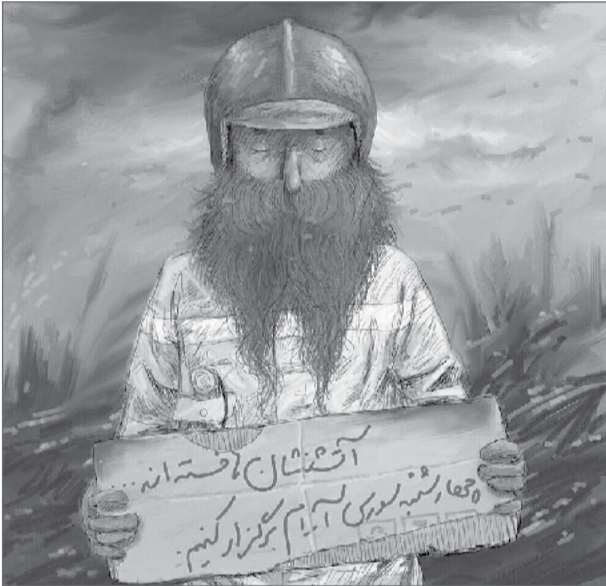 آتشنشان ها خسته اند...
چهارشنبه سوری آرام برگزار کنیم.